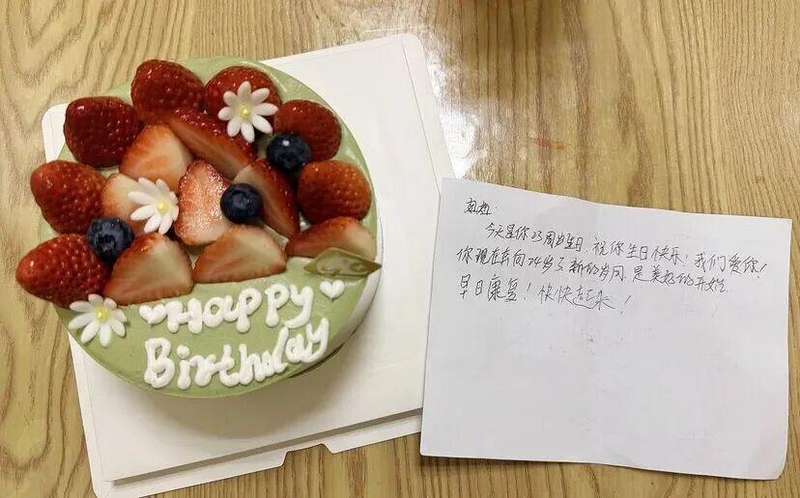 Happy
Birthday
今天是你23周岁生日 祝你生日快乐！我们爱你！
你现在去向24岁了 新的岁月 是美好的开始
早日康复！快快起来！